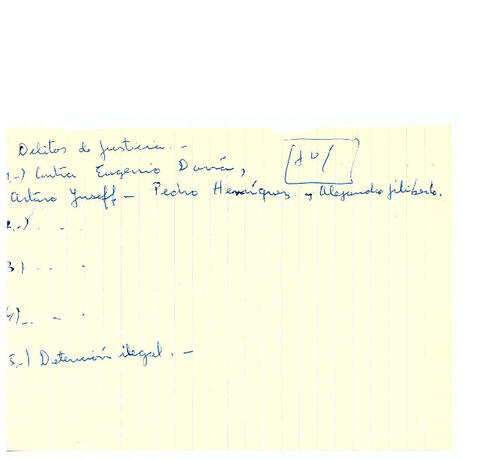 Delitos de Justicia. -
1.-) Contra Eugenio
Arturo Yuseff - Pedro Henríquez y Alejandro filiberto.
2.-) . - -
3) - - -
4) - - -
5.-) Detención ilegal. -